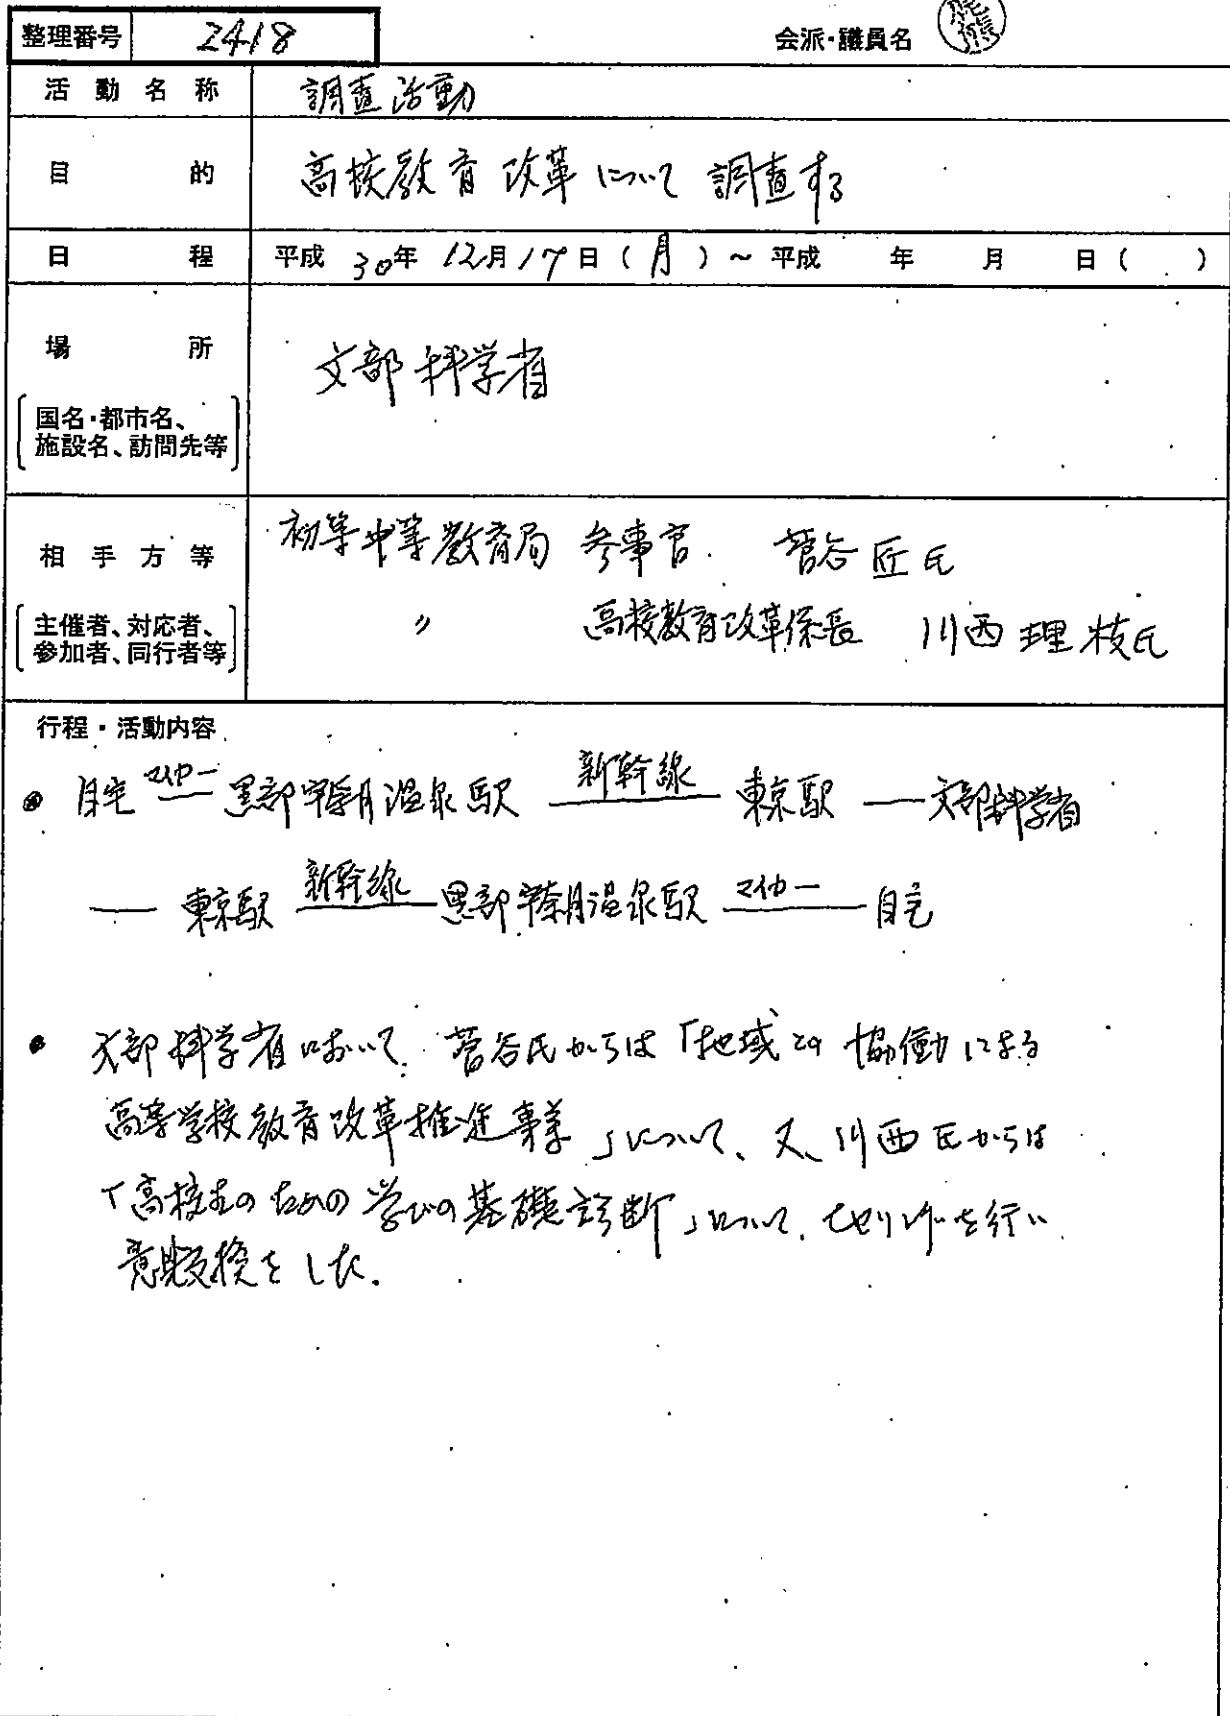 整理番号 2418 会派・議員名
活動名称 調査活動
目的 高校教育改革について調査する
日程 平成30年12月17日(月)～平成 年 月 日( )
場所 文部科学省
国名・都市名、
施設名、訪問先等
相手方等 初等中等教育局 参事官 菅谷 匠氏
〃 高校教育改革係長 川西 理枝氏
主催者、対応者、
参加者、同行者等
行程・活動内容
自宅 マイカー 黒部宇奈月温泉駅 新幹線 東京駅 ― 文部科学省
― 東京駅 新幹線 黒部宇奈月温泉駅 マイカー 自宅
文部科学省において、菅谷氏からは「地域との協働による
高等学校教育改革推進事業」について、又、川西氏からは
「高校生のための学びの基礎診断」について、ヒヤリングを行い
意見交換をした.